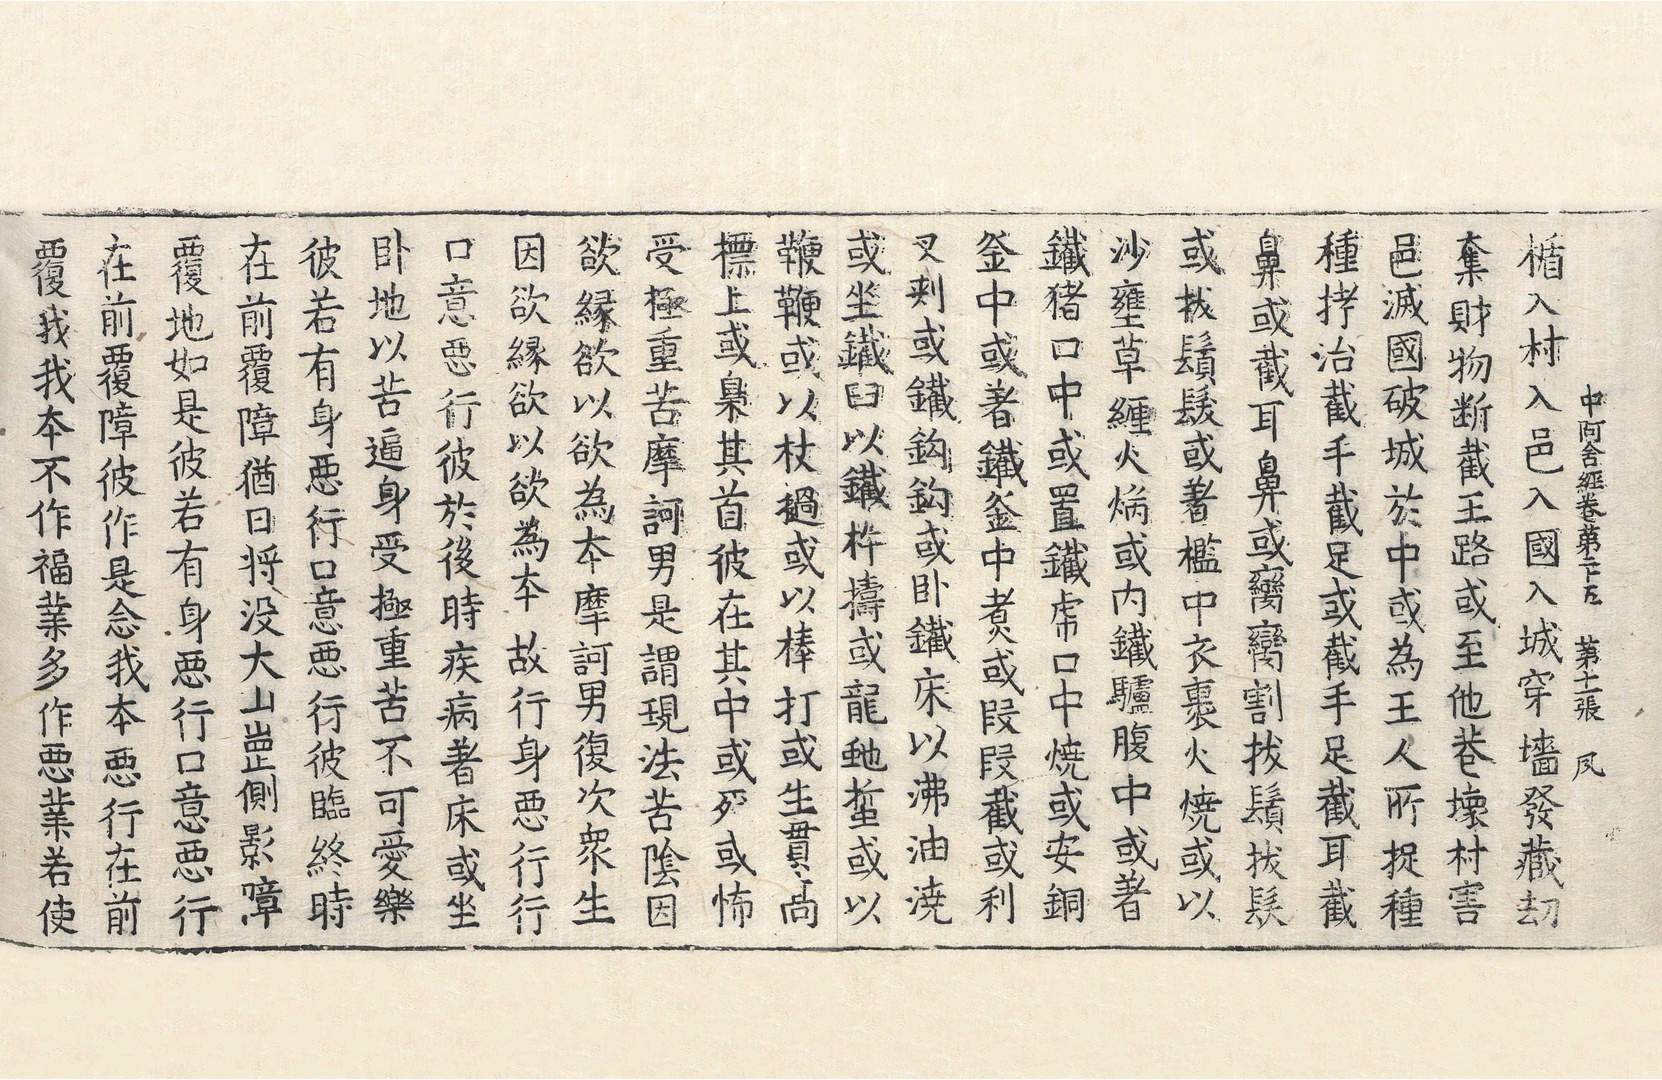 中阿含經卷第二十五　第十一張　夙
楯入村入邑入國入城穿墻發藏刧
奪財物断截王路或至他巷壞村害
邑滅國破城於中或為王人所捉種
種拷治截手截足或截手足截耳截
鼻或截耳鼻或臠臠割拔鬚拔髮
或拔鬚髮或著檻中衣裹火燒或以
沙壅草纒火焫或内鐵驢腹中或著
鐵猪口中或置鐵虎口中燒或安銅
釜中或著鐵釜中煮或段段截或利
叉刺或鐵鈎鈎或卧鐵床以沸油澆
或坐鐵臼以鐵杵擣或龍虵蜇或以
鞭鞭或以杖撾或以棒打或生貫高
標上或梟其首彼在其中或死或怖
受極重苦摩訶男是謂現法苦陰因
欲緣欲以欲為本摩訶男復次衆生
因欲緣欲以欲為本故行身惡行行
口意惡行彼於後時疾病著床或坐
卧地以苦逼身受極重苦不可愛樂
彼若有身惡行口意惡行彼臨終時
在前覆障猶日將没大山崗側影障
覆地如是彼若有身惡行口意惡行
在前覆障彼作是念我本惡行在前
覆我我本不作福業多作惡業若使